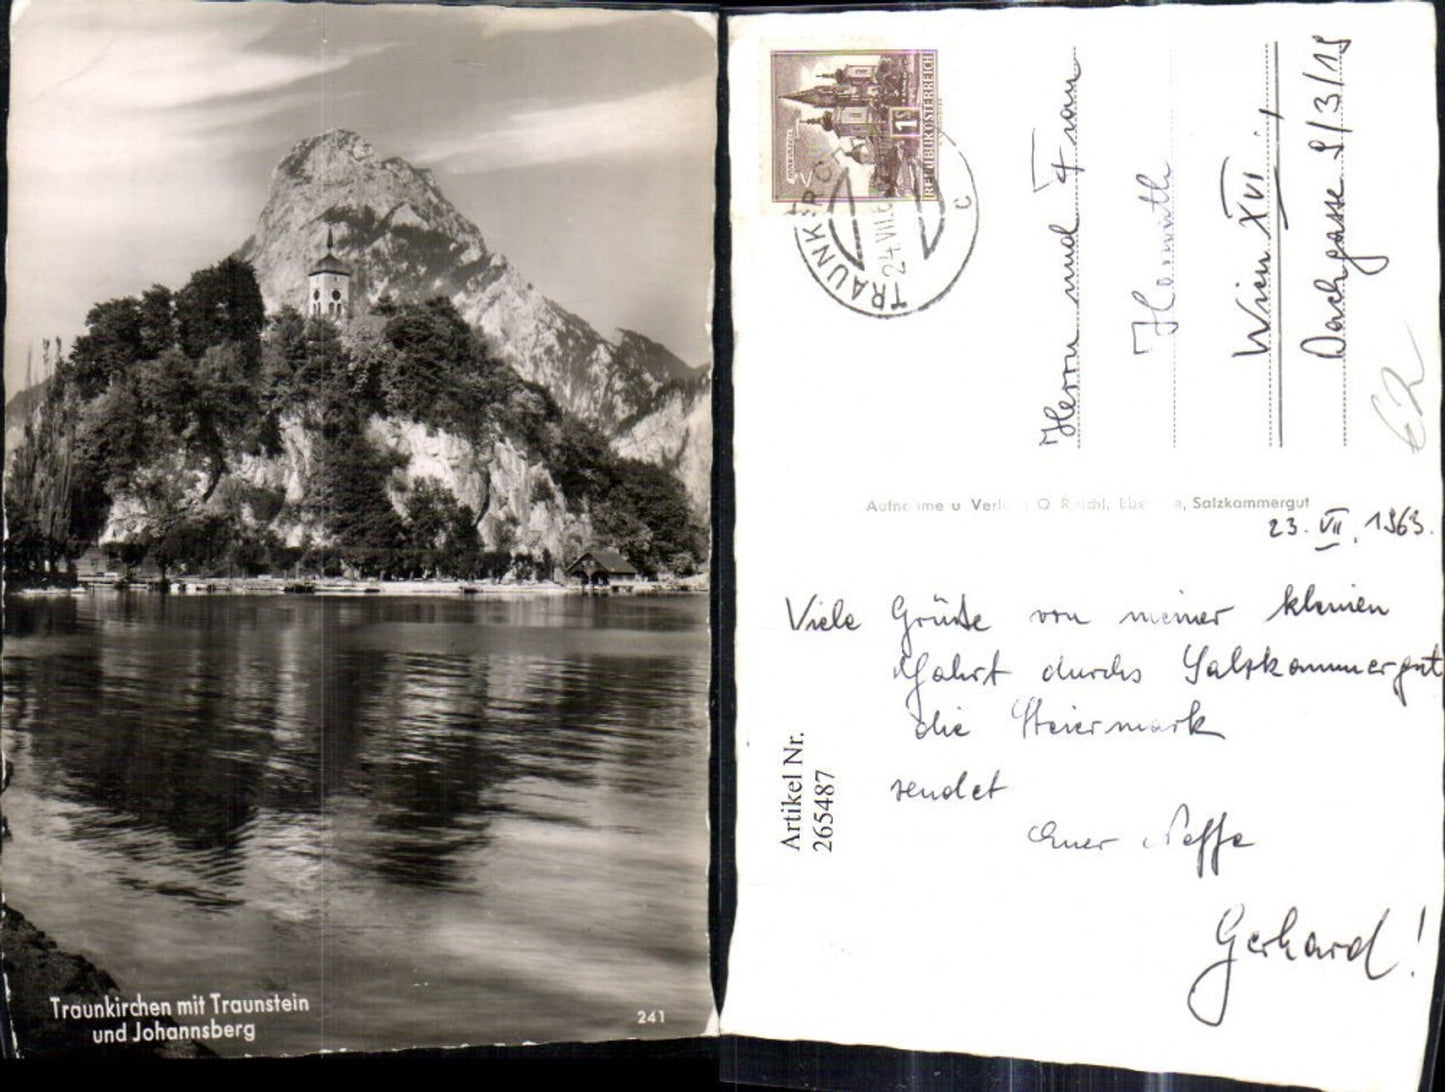 Traunkirchen mit Traunstein
und Johannsberg
241
REPUBLIK ÖSTERREICH
1
TRAUNKIRCH
24.VII.6
c
Herrn und Frau
Hemuth
Wien XVI.,
Dachgasse 9/3/19
€2
Aufnahme u. Verlag O. Reichl, Ebensee, Salzkammergut
23. VII. 1963.
Viele Grüße von meiner kleinen
Fahrt durchs Salzkammergut
die Steiermark
sendet
Euer Neffe
Gerhard!
Artikel Nr.
265487